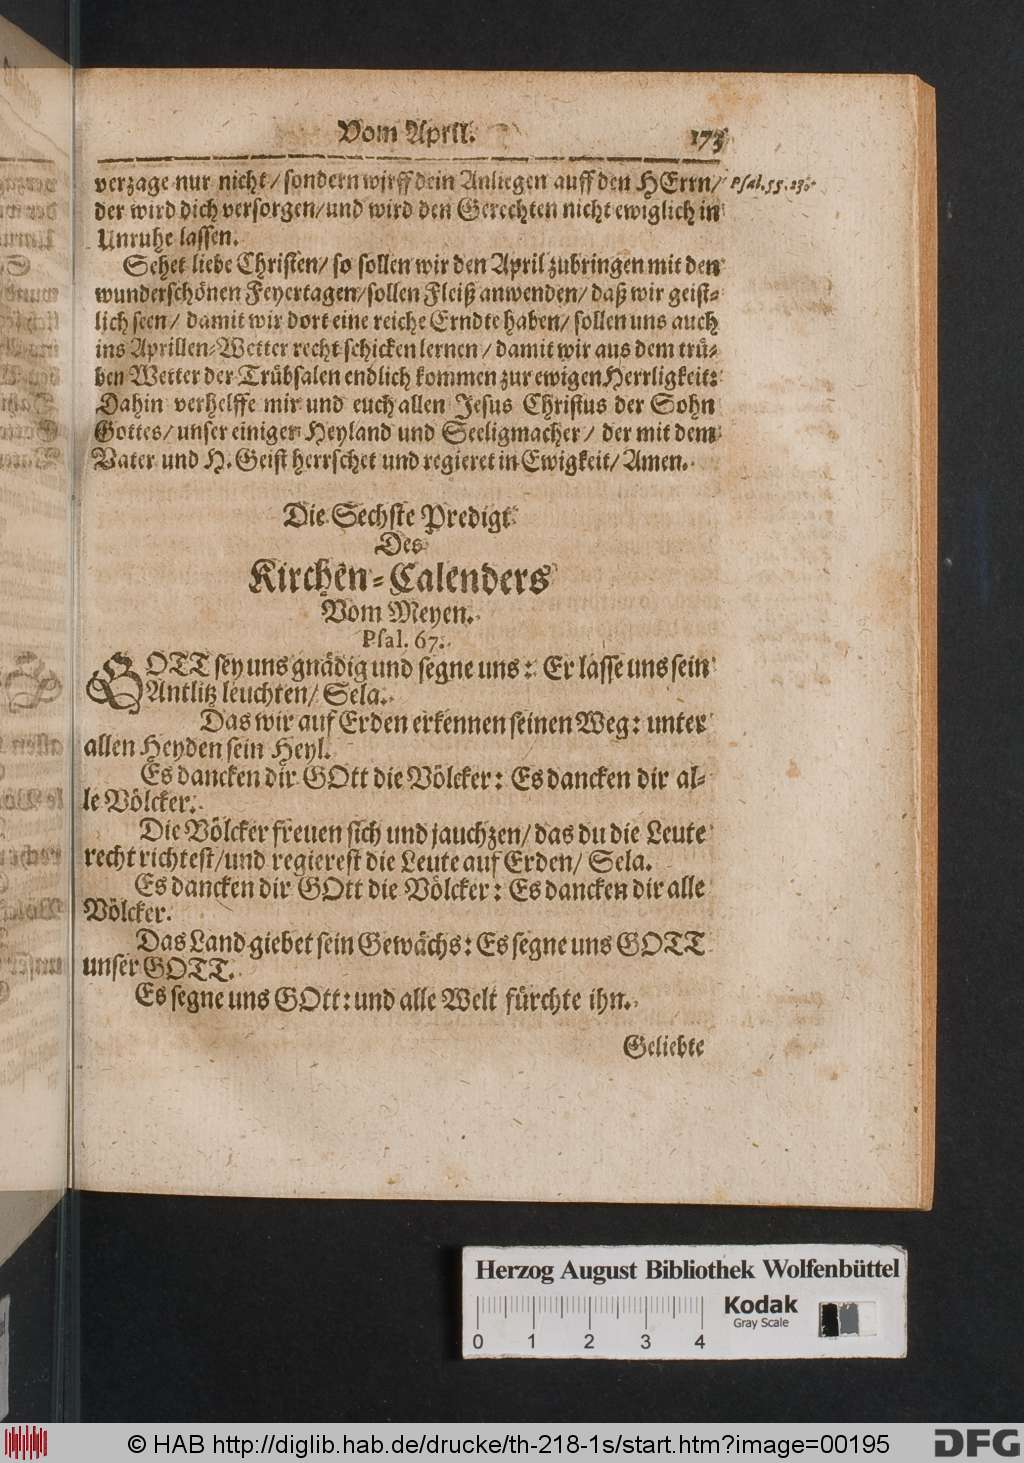 Vom April. 173
verzage nur nicht/ sondern wirff dein Anliegen auff den HErrn/ Psal. 55. 23.
der wird dich versorgen/ und wird den Gerechten nicht ewiglich in
Unruhe lassen.
Sehet liebe Christen/ so sollen wir den April zubringen mit den
wunderschönen Feyertagen/ sollen Fleiß anwenden/ daß wir geist-
lich seen/ damit wir dort eine reiche Erndte haben/ sollen uns auch
ins Aprillen-Wetter recht schicken lernen/ damit wir aus dem trü-
ben Wetter der Trübsalen endlich kommen zur ewigen Herrligkeit:
Dahin verhelffe mir und euch allen Jesus Christus der Sohn
Gottes/ unser einiger Heyland und Seeligmacher/ der mit dem
Vater und H. Geist herrschet und regieret in Ewigkeit/ Amen.
Die Sechste Predigt
Des
Kirchen-Calenders
Vom Meyen.
Psal. 67.
GOTT sey uns gnädig und segne uns: Er lasse uns sein
Antlitz leuchten/ Sela.
Das wir auf Erden erkennen seinen Weg: unter
allen Heyden sein Heyl.
Es dancken dir GOtt die Völcker: Es dancken dir al-
le Völcker.
Die Völcker freuen sich und jauchzen/ das du die Leute
recht richtest/ und regierest die Leute auf Erden/ Sela.
Es dancken dir GOtt die Völcker: Es dancken dir alle
Völcker.
Das Land giebet sein Gewächs: Es segne uns GOTT
unser GOTT.
Es segne uns GOtt: und alle Welt fürchte ihn.
Geliebte
Herzog August Bibliothek Wolfenbüttel
Kodak
Gray Scale
0 1 2 3 4
© HAB http://diglib.hab.de/drucke/th-218-1s/start.htm?image=00195
DFG